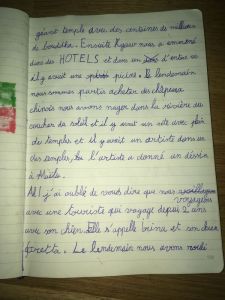 géant temple avec des centaines de milliers
de bouddha. Ensuite Kyaw nous a emmené
dans des HOTELS et dans un d'entre eux
il y avait une piscine. Le lendemain
nous sommes partis acheter des chapeaux
chinois nous avons nagé dans la rivière au
coucher du soleil et il y avait un site avec plein
de temples et il y avait un artiste dans un
des temples, l'artiste a donné un dessin
à Maële.
Ah! j'ai oublié de vous dire que nous voyageons
avec une touriste qui voyage depuis 2 ans
avec son chien. Elle s'appelle Irina et son chien
Gretta. Le lendemain nous avons roulé